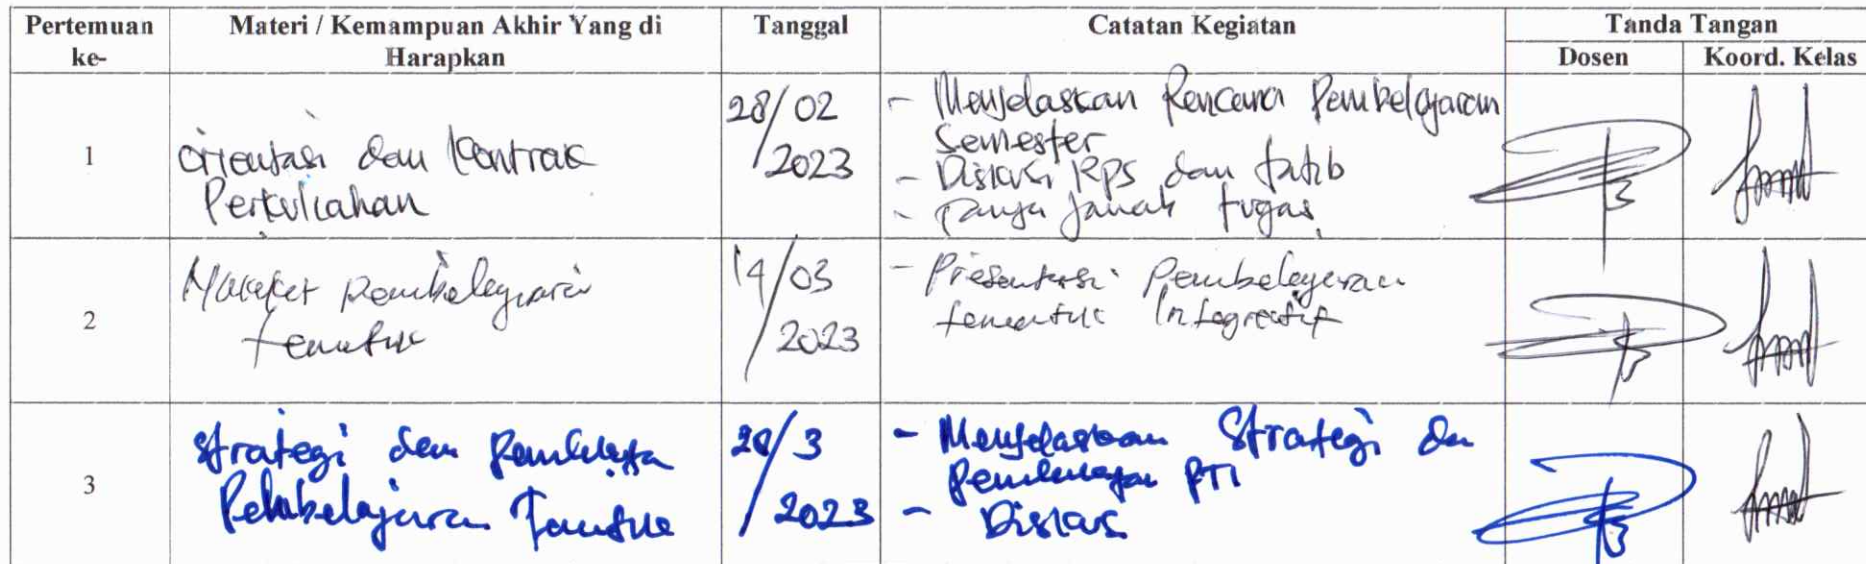 Pertemuan ke-
Materi / Kemampuan Akhir Yang di Harapkan
Tanggal
Catatan Kegiatan
Tanda Tangan
Dosen
Koord. Kelas
1
Orientasi dan Kontrak
Perkuliahan
28/02
2023
- Menjelaskan Rencana Pembelajaran
Semester
- Diskusi RPS dan tatib
- Tanya jawab tugas
2
Pembelajaran
14/03
2023
- Presentasi Pembelajaran
Integratif
3
Strategi dan
Pembelajaran
28/3
2023
- Menjelaskan Strategi
PTI
- Diskusi